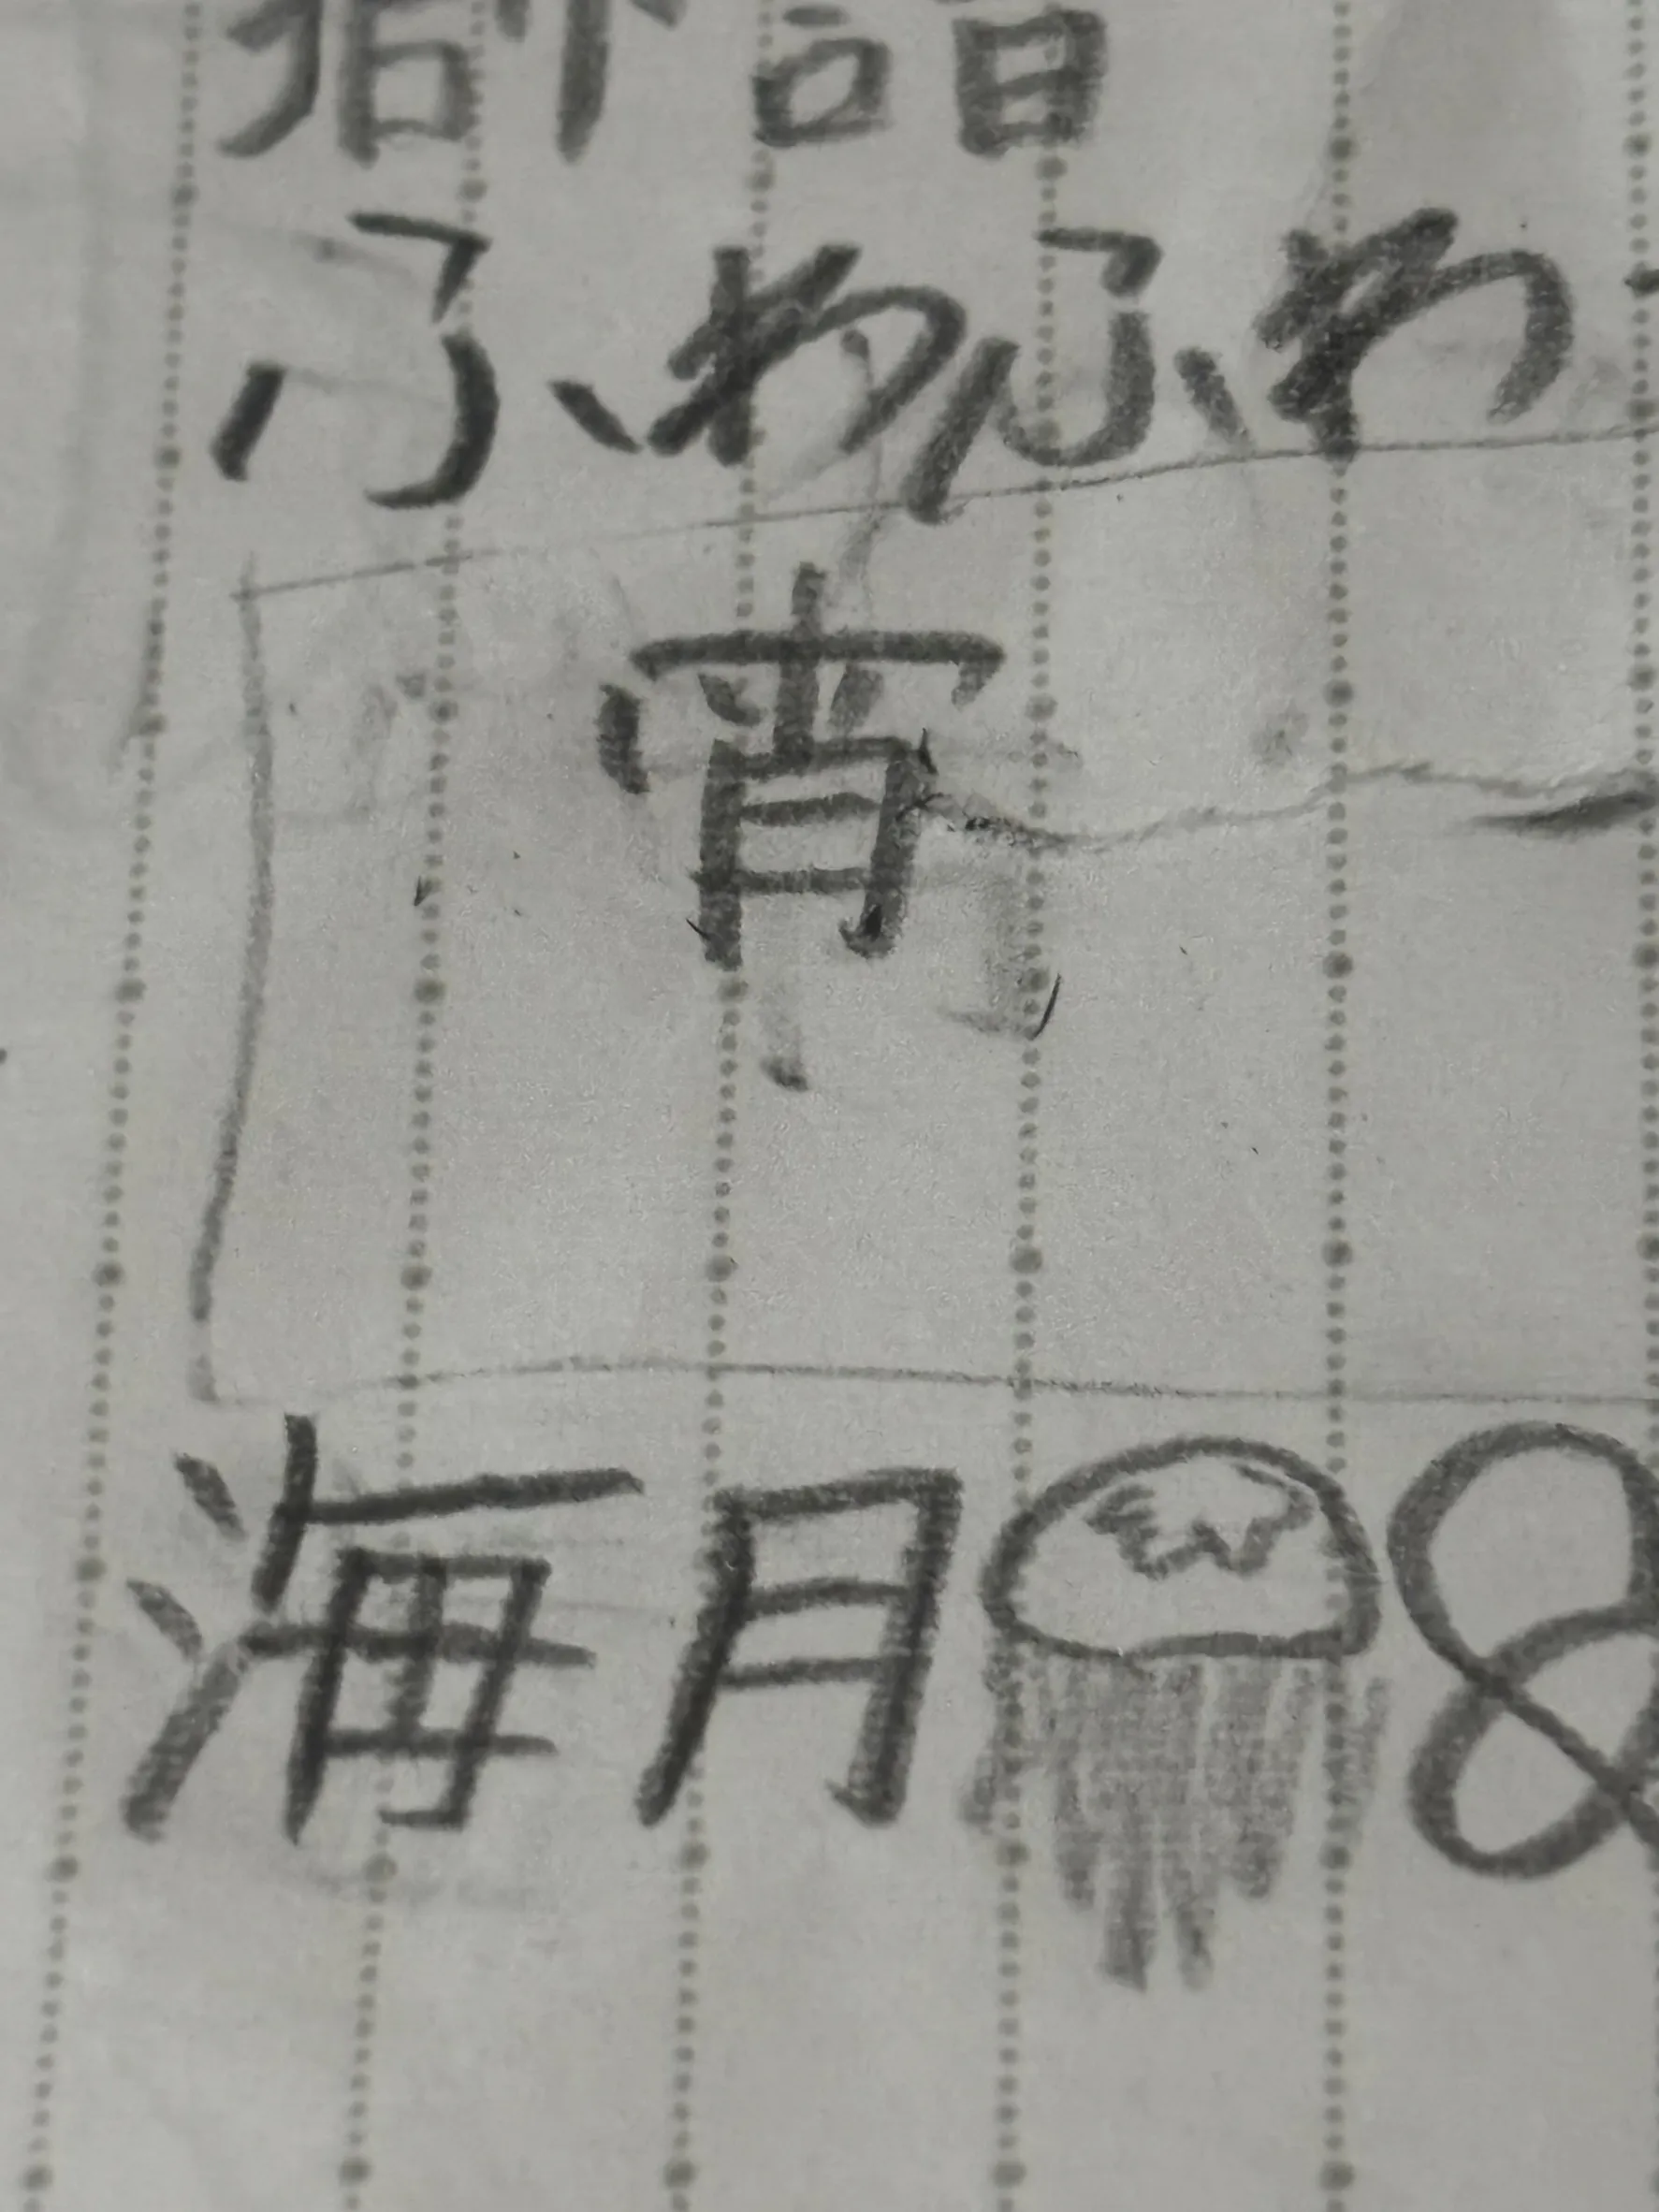 ふわふわ
宵
海月8